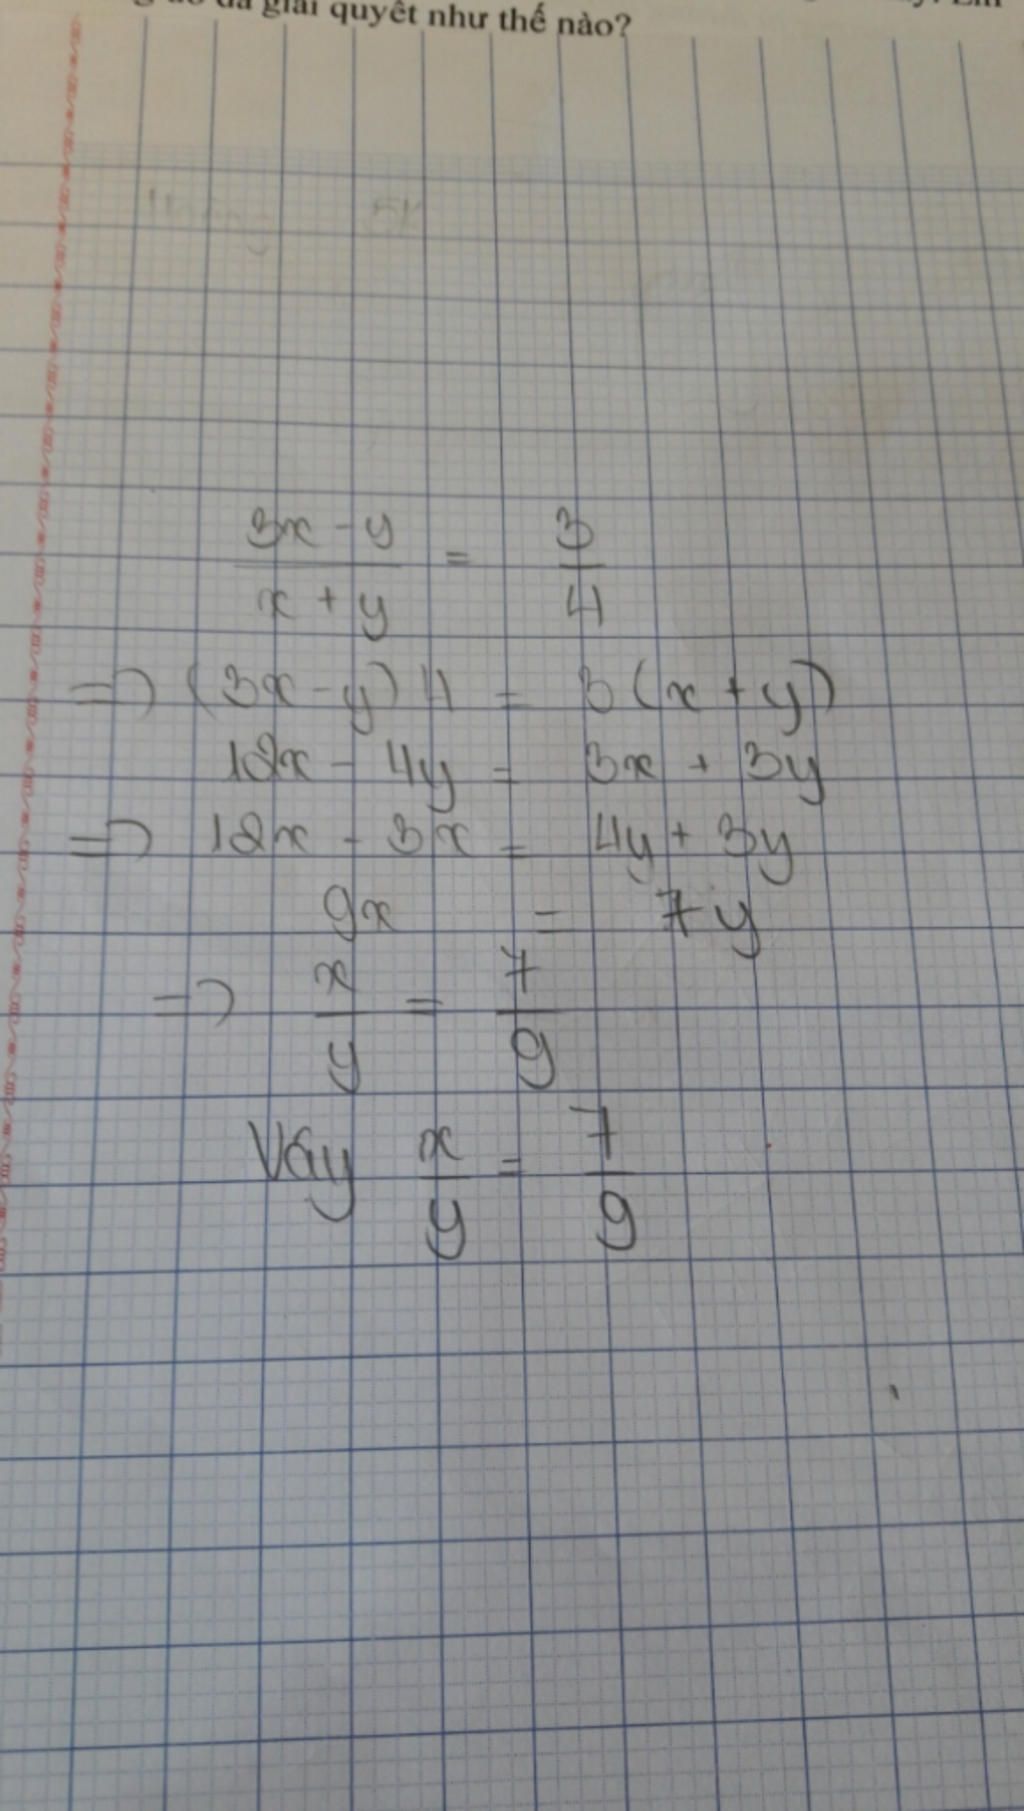 giải quyết như thế nào?
3x - y / x + y = 3 / 4
=> (3x - y) 4 = 3 (x + y)
12x - 4y = 3x + 3y
=> 12x - 3x = 4y + 3y
9x = 7y
=> x / y = 7 / 9
Vậy x / y = 7 / 9